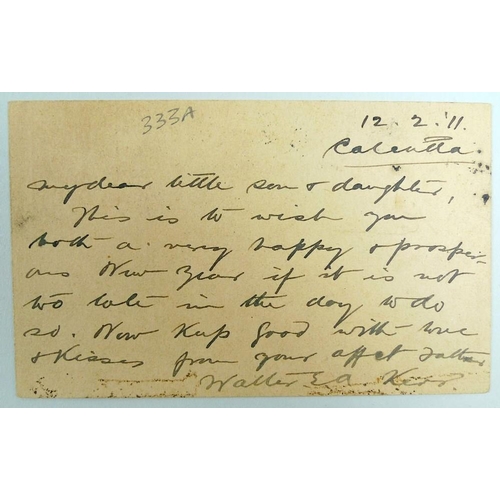 333A
12.2.11.
Calcutta.
my dear little son & daughter,
This is to wish you
both a very happy & prosper-
ous New Year if it is not
too late in the day to do
so. Now Keep Good with love
& Kisses from your affct father
Walter E.A. Kerr.